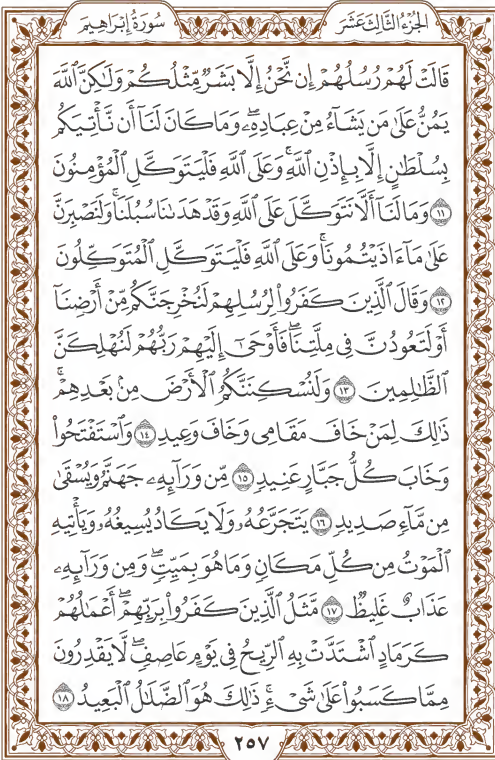 الجزء الثالث عشر
سورة إبراهيم
قَالَتْ لَهُمْ رُسُلُهُمْ إِن نَّحْنُ إِلَّا بَشَرٌ مِّثْلُكُمْ وَلَـٰكِنَّ ٱللَّهَ
يَمُنُّ عَلَىٰ مَن يَشَآءُ مِنْ عِبَادِهِۦۖ وَمَا كَانَ لَنَآ أَن نَّأْتِيَكُم
بِسُلْطَـٰنٍ إِلَّا بِإِذْنِ ٱللَّهِۚ وَعَلَى ٱللَّهِ فَلْيَتَوَكَّلِ ٱلْمُؤْمِنُونَ
١١ وَمَا لَنَآ أَلَّا نَتَوَكَّلَ عَلَى ٱللَّهِ وَقَدْ هَدَىٰنَا سُبُلَنَاۚ وَلَنَصْبِرَنَّ
عَلَىٰ مَآ ءَاذَيْتُمُونَاۚ وَعَلَى ٱللَّهِ فَلْيَتَوَكَّلِ ٱلْمُتَوَكِّلُونَ
١٢ وَقَالَ ٱلَّذِينَ كَفَرُوا۟ لِرُسُلِهِمْ لَنُخْرِجَنَّكُم مِّنْ أَرْضِنَآ
أَوْ لَتَعُودُنَّ فِى مِلَّتِنَاۖ فَأَوْحَىٰٓ إِلَيْهِمْ رَبُّهُمْ لَنُهْلِكَنَّ
ٱلظَّـٰلِمِينَ ١٣ وَلَنُسْكِنَنَّكُمُ ٱلْأَرْضَ مِنۢ بَعْدِهِمْۚ
ذَٰلِكَ لِمَنْ خَافَ مَقَامِى وَخَافَ وَعِيدِ ١٤ وَٱسْتَفْتَحُوا۟
وَخَابَ كُلُّ جَبَّارٍ عَنِيدٍ ١٥ مِّن وَرَآئِهِۦ جَهَنَّمُ وَيُسْقَىٰ
مِن مَّآءٍ صَدِيدٍ ١٦ يَتَجَرَّعُهُۥ وَلَا يَكَادُ يُسِيغُهُۥ وَيَأْتِيهِ
ٱلْمَوْتُ مِن كُلِّ مَكَانٍ وَمَا هُوَ بِمَيِّتٍۖ وَمِن وَرَآئِهِۦ
عَذَابٌ غَلِيظٌ ١٧ مَّثَلُ ٱلَّذِينَ كَفَرُوا۟ بِرَبِّهِمْۖ أَعْمَـٰلُهُمْ
كَرَمَادٍ ٱشْتَدَّتْ بِهِ ٱلرِّيحُ فِى يَوْمٍ عَاصِفٍۖ لَّا يَقْدِرُونَ
مِمَّا كَسَبُوا۟ عَلَىٰ شَىْءٍۚ ذَٰلِكَ هُوَ ٱلضَّلَـٰلُ ٱلْبَعِيدُ ١٨
٢٥٧